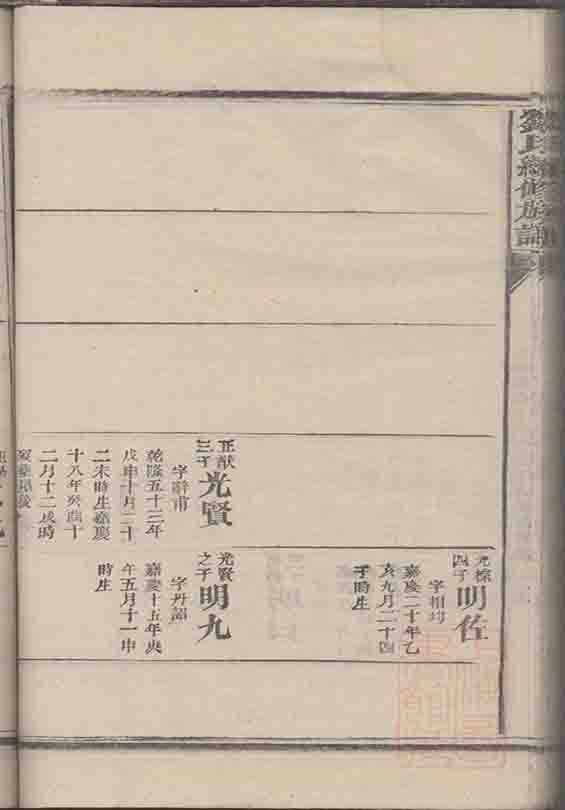 劉氏續修族譜
光榜
四子
明佐
字相均
嘉慶二十年乙
亥九月二十四
子時生
正猷
三子
光賢
字辭甫
乾隆五十三年
戊申十月二十
二未時生嘉慶
十八年癸酉十
二月十二戌時
光賢
之子
明九
字丹詔
嘉慶十五年庚
午五月十一申
時生